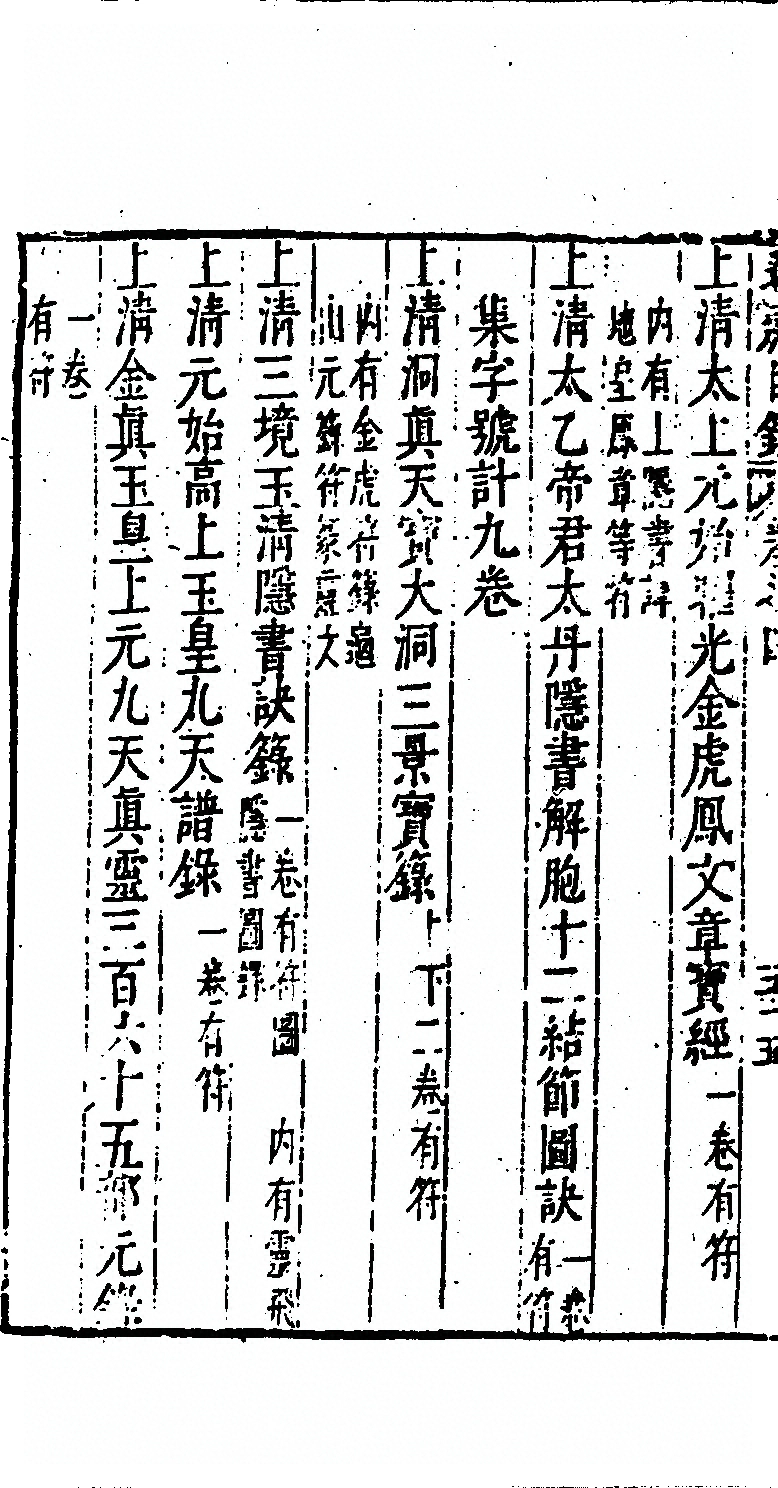 道藏目錄 卷之四 五十五
上清太上元始耀光金虎鳳文章寶經一卷有符
内有上隱書評
地皇原章等符
上清太乙帝君太丹隱書解胞十二結節圖訣一卷
有符
集字號計九卷
上清洞眞天寶大洞三景寶籙上下二卷有符
内有金虎符籙過
山元籙符篆靈文
上清三境玉清隱書訣籙一卷有符圖 内有靈飛
隱書圖籙
上清元始高上玉皇九天譜錄一卷有符
上清金眞玉皇上元九天眞靈三百六十五部元籙
一卷
有符